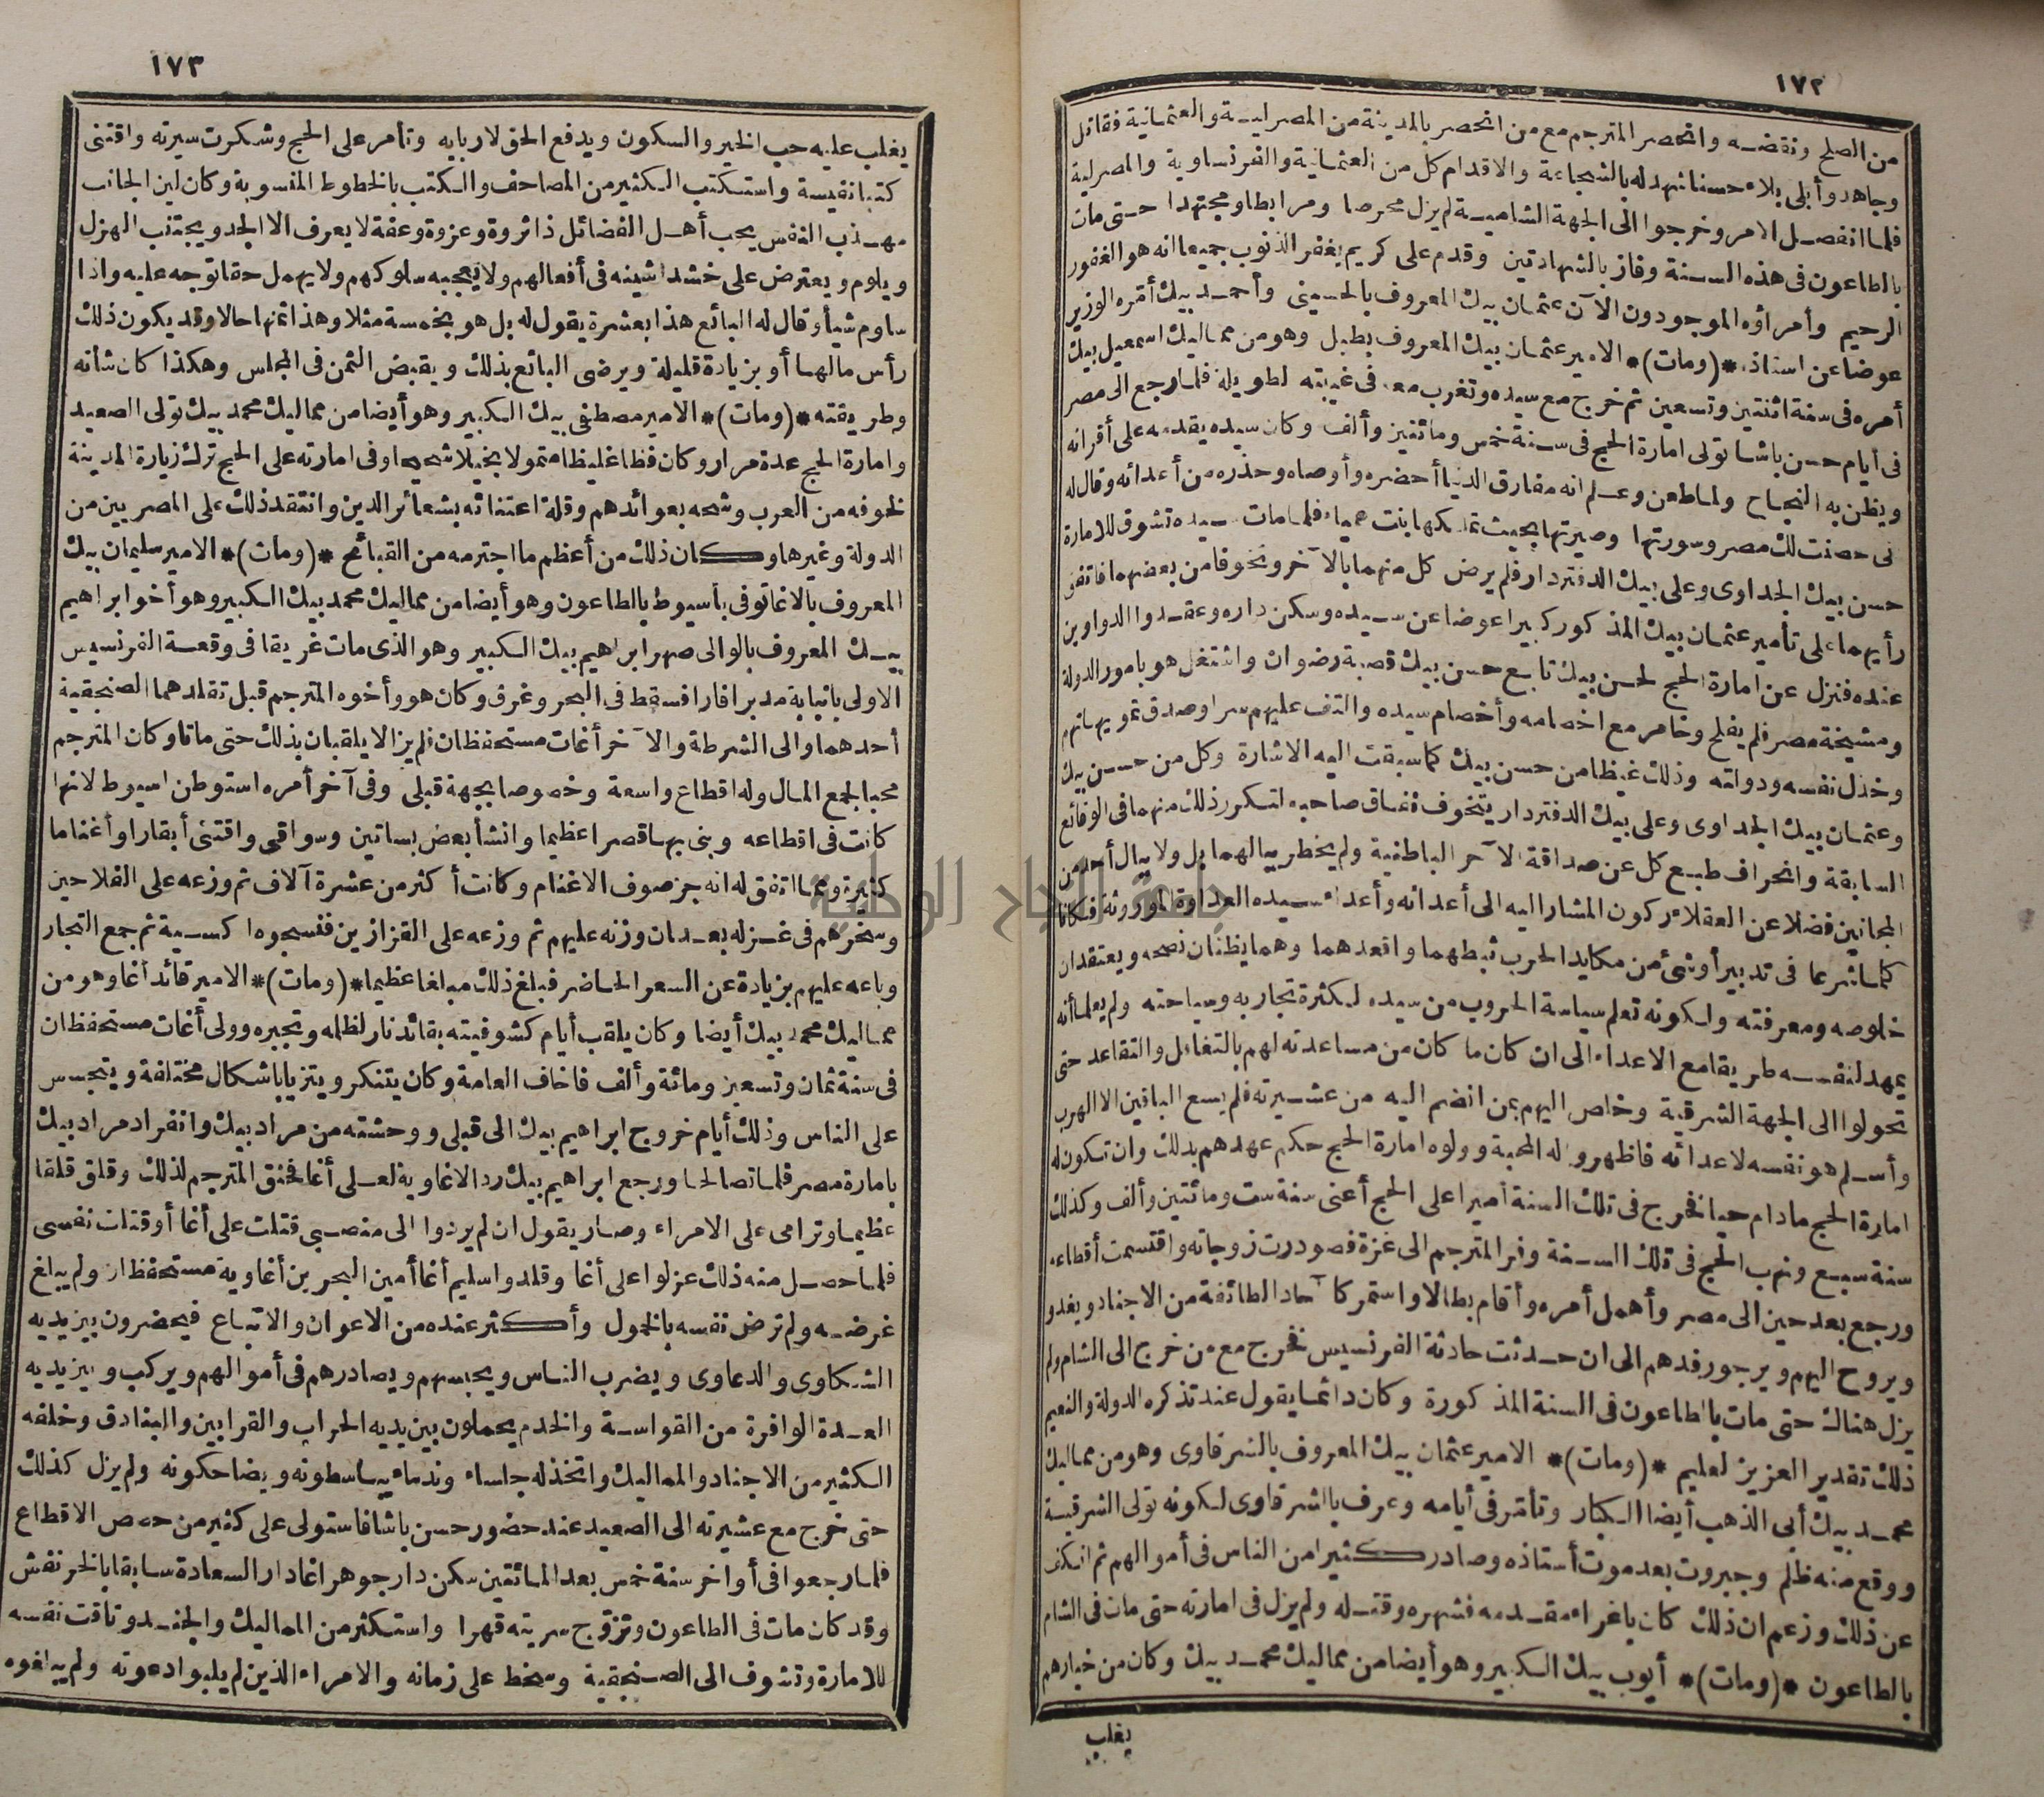 ١٧٢
من الصلح ونقضه وانحصر المترجم مع من انحصر بالمدينة من المصرلية والعثمانية فقاتل
وجاهد وأبلى بلاء حسنا شهد له بالشجاعة والاقدام كل من العثمانية والفرنساوية والمصرلية
فلما انفصل الامر وخرجوا الى الجهة الشامية لم يزل محرصا ومرابطا ومجتهدا حتى مات
بالطاعون فى هذه السنة وفاز بالشهادتين وقدم على كريم يغفر الذنوب جميعا انه هو الغفور
الرحيم وأمراؤه الموجودون الآن عثمان بيك المعروف بالحسينى وأحمد بيك أمره الوزير
عوضا عن استاذه *(ومات)* الامير عثمان بيك المعروف بطبل وهو من مماليك اسمعيل بيك
أمره فى سنة اثنتين وتسعين ثم خرج مع سيده وتغرب معه فى غيبته لطويلة فلما رجع الى مصر
فى أيام حسن باشا تولى امارة الحج فى سنة خمس ومائتين وألف وكان سيده يقدمه على أقرانه
ويظن به النجاح ولما طعن وعلم انه مفارق الدنيا أحضره وأوصاه وحذره من أعدائه وقال له
نى حصنت لك مصر وسورتها وصيرتها بحيث تملكها بنت عمياء فلما مات سيده تشوق للامارة
حسن بيك الجداوى وعلى بيك الدفتردار فلم يرض كل منهما بالآخر وتخوفا من بعضهما فاتفق
رأيهما على تأمير عثمان بيك المذكور كبيرا عوضا عن سيده وسكن داره وعقدوا الدواوين
عنده فنزل عن امارة الحج لحسن بيك تابع حسن بيك قصبة رضوان واشتغل هو بامور الدولة
ومشيخة مصر فلم يفلح وخامر مع اخصامه وأخصام سيده والتف عليهم سرا وصدق تمويهاتهم
وخذل نفسه ودولته وذلك غيظا من حسن بيك كما سبقت اليه الاشارة وكل من حسن بيك
وعثمان بيك الجداوى وعلى بيك الدفتردار يتخوف نفاق صاحبه لتكرر ذلك منهما فى الوقائع
السابقة وانحراف طبع كل عن صداقة الآخر الباطنية ولم يخطر ببالهما بل ولا ببال أحد من
المجانين فضلا عن العقلاء ركون المشار اليه الى أعدائه وأعداء سيده العداوة الموروثة فكانا
كلما شرعا فى تدبير أوشئ من مكايد الحرب ثبطهما واقعدهما وهما يظنان نصحه ويعتقدان
خلوصه ومعرفته ولكونه تعلم سياسة الحروب من سيده لكثرة تجاربه وسياحته ولم يعلما أنه
يمهد لنفسه طريقا مع الاعداء الى ان كان ما كان من مساعدته لهم بالتغافل والتقاعد حتى
تحولوا الى الجهة الشرقية وخاص اليهم بمن انضم اليه من عشيرته فلم يسع الباقين الا الهرب
وأسلم هو نفسه لاعدائه فاظهروا له المحبة وولوه امارة الحج حكم عهدهم بذلك وان تكون له
امارة الحج مادام حيا فخرج فى تلك السنة أميرا على الحج أعنى سنة ست ومائتين وألف وكذلك
سنة سبع ونهب الحج فى تلك السنة وفر المترجم الى غزة فصودرت زوجاته واقتسمت أقطاعه
ورجع بعد حين الى مصر وأهمل أمره وأقام بطالا واستمر كآحاد الطائفة من الاجناد ويغدو
ويروح اليهم ويرجو رفدهم الى ان حدثت حادثة الفرنسيس فخرج مع من خرج الى الشام ولم
يزل هناك حتى مات بالطاعون فى السنة المذكورة وكان دائما يقول عند تذكره الدولة والنعيم
ذلك تقدير العزيز لعليم *(ومات)* الامير عثمان بيك المعروف بالشرقاوى وهو من مماليك
محمد بيك أبى الذهب أيضا الكبار وتأمر فى أيامه وعرف بالشرقاوى لكونه تولى الشرقية
ووقع منه ظلم وجبروت بعد موت أستاذه وصادر كثيرا من الناس فى أموالهم ثم انكف
عن ذلك وزعم ان ذلك كان باغراء مقدمه فشهره وقتله ولم يزل فى امارته حتى مات فى الشام
بالطاعون *(ومات)* أيوب بيك الكبير وهو أيضا من مماليك محمد بيك وكان من خيارهم
يغلب
١٧٣
يغلب عليه حب الخير والسكون ويدفع الحق لاربابه وتأمر على الحج وشكرت سيرته واقتنى
كتبا نفيسة واستكتب الكثير من المصاحف والكتب بالخطوط المنسوبة وكان لين الجانب
مهذب النفس يحب أهل الفضائل ذا ثروة وعزوة وعفة لا يعرف الا الجد ويجتنب الهزل
ويلوم ويعترض على خشداشينه فى أفعالهم ولا يعجبه سلوكهم ولا يهمل حقا توجه عليه واذا
ساوم شيأ وقال له البائع هذا بعشرة يقول له بل هو بخمسة مثلا وهذا ثمنها حالا وقد يكون ذلك
رأس مالها أو بزيادة قليلة ويرضى البائع بذلك ويقبض الثمن فى المجلس وهكذا كان شأنه
وطريقته *(ومات)* الامير مصطفى بيك الكبير وهو أيضا من مماليك محمد بيك تولى الصعيد
وامارة الحج عدة مرار وكان فظا غليظا متمولا بخيلا شحيحا وفى امارته على الحج ترك زيارة المدينة
لخوفه من العرب وشحه بعوائدهم وقلة اعتنائه بشعائر الدين وانتقد ذلك على المصريين من
الدولة وغيرها وكان ذلك من أعظم ما اجترمه من القبائح *(ومات)* الامير سليمان بيك
المعروف بالاغا توفى بأسيوط بالطاعون وهو أيضا من مماليك محمد بيك الكبير وهو أخو ابراهيم
بيك المعروف بالوالى صهر ابراهيم بيك الكبير وهو الذى مات غريقا فى وقعة الفرنسيس
الاولى بانبابة مدبرا فارا فسقط فى البحر وغرق وكان هو وأخوه المترجم قبل تقلدهما الصنجقية
أحدهما والى الشرطة والآخر أغات مستحفظان فلم يزالا يلقبان بذلك حتى ماتا وكان المترجم
محبا لجمع المال وله اقطاع واسعة وخصوصا بجهة قبلى وفى آخر أمره استوطن اسيوط لانها
كانت فى اقطاعه وبنى بها قصرا عظيما وانشأ بعض بساتين وسواقى واقتنى أبقارا وأغناما
كثيرة ومما اتفق له انه جز صوف الاغنام وكانت أكثر من عشرة آلاف ثم وزعه على الفلاحين
وسخرهم فى غزله بعد ان وزنه عليهم ثم وزعه على القزازين فنسجوه اكسية ثم جمع التجار
وباعه عليهم بزيادة عن السعر الحاضر فبلغ ذلك مبلغا عظيما *(ومات)* الامير قائد أغا وهو من
مماليك محمد بيك أيضا وكان يلقب أيام كشوفيته بقائد نار لظلمه وتجبره وولى أغات مستحفظان
فى سنة ثمان وتسعين ومائة وألف فاخاف العامة وكان يتنكر ويتزيا باشكال مختلفة ويتجسس
على الناس وذلك أيام خروج ابراهيم بيك الى قبلى ووحشته من مراد بيك وانفراد مراد بيك
بامارة مصر فلما تصالحا ورجع ابراهيم بيك رد الاغاوية لعلى أغا فخنق المترجم لذلك وقلق قلقا
عظيما وترامى على الامراء وصار يقول ان لم يردوا الى منصبى قتلت على أغا أو قتلت نفسى
فلما حصل منه ذلك عزلوا على أغا وقلدوا سليم أغا أمين البحرين أغاوية مستحفظان ولم يبلغ
غرضه ولم ترض نفسه بالخمول وأكثر عنده من الاعوان والاتباع فيحضرون بين يديه
الشكاوى والدعاوى ويضرب الناس ويحبسهم ويصادرهم فى أموالهم ويركب وبين يديه
العدة الوافرة من القواسة والخدم يحملون بين يديه الحراب والقرابين والبنادق وخلفه
الكثير من الاجناد والمماليك واتخذ له جلساء وندماء يباسطونه ويضاحكونه ولم يزل كذلك
حتى خرج مع عشيرته الى الصعيد عند حضور حسن باشا فاستولى على كثير من حصص الاقطاع
فلما رجعوا فى أواخر سنة خمس بعد المائتين سكن دار جوهر اغا دار السعادة سابقا بالخرنفش
وقد كان مات فى الطاعون وتزوج سريته قهرا واستكثر من المماليك والجند وتاقت نفسه
للامارة وتشوف الى الصنجقية وسخط على زمانه والامراء الذين لم يلبوا دعوته ولم يبلغوه